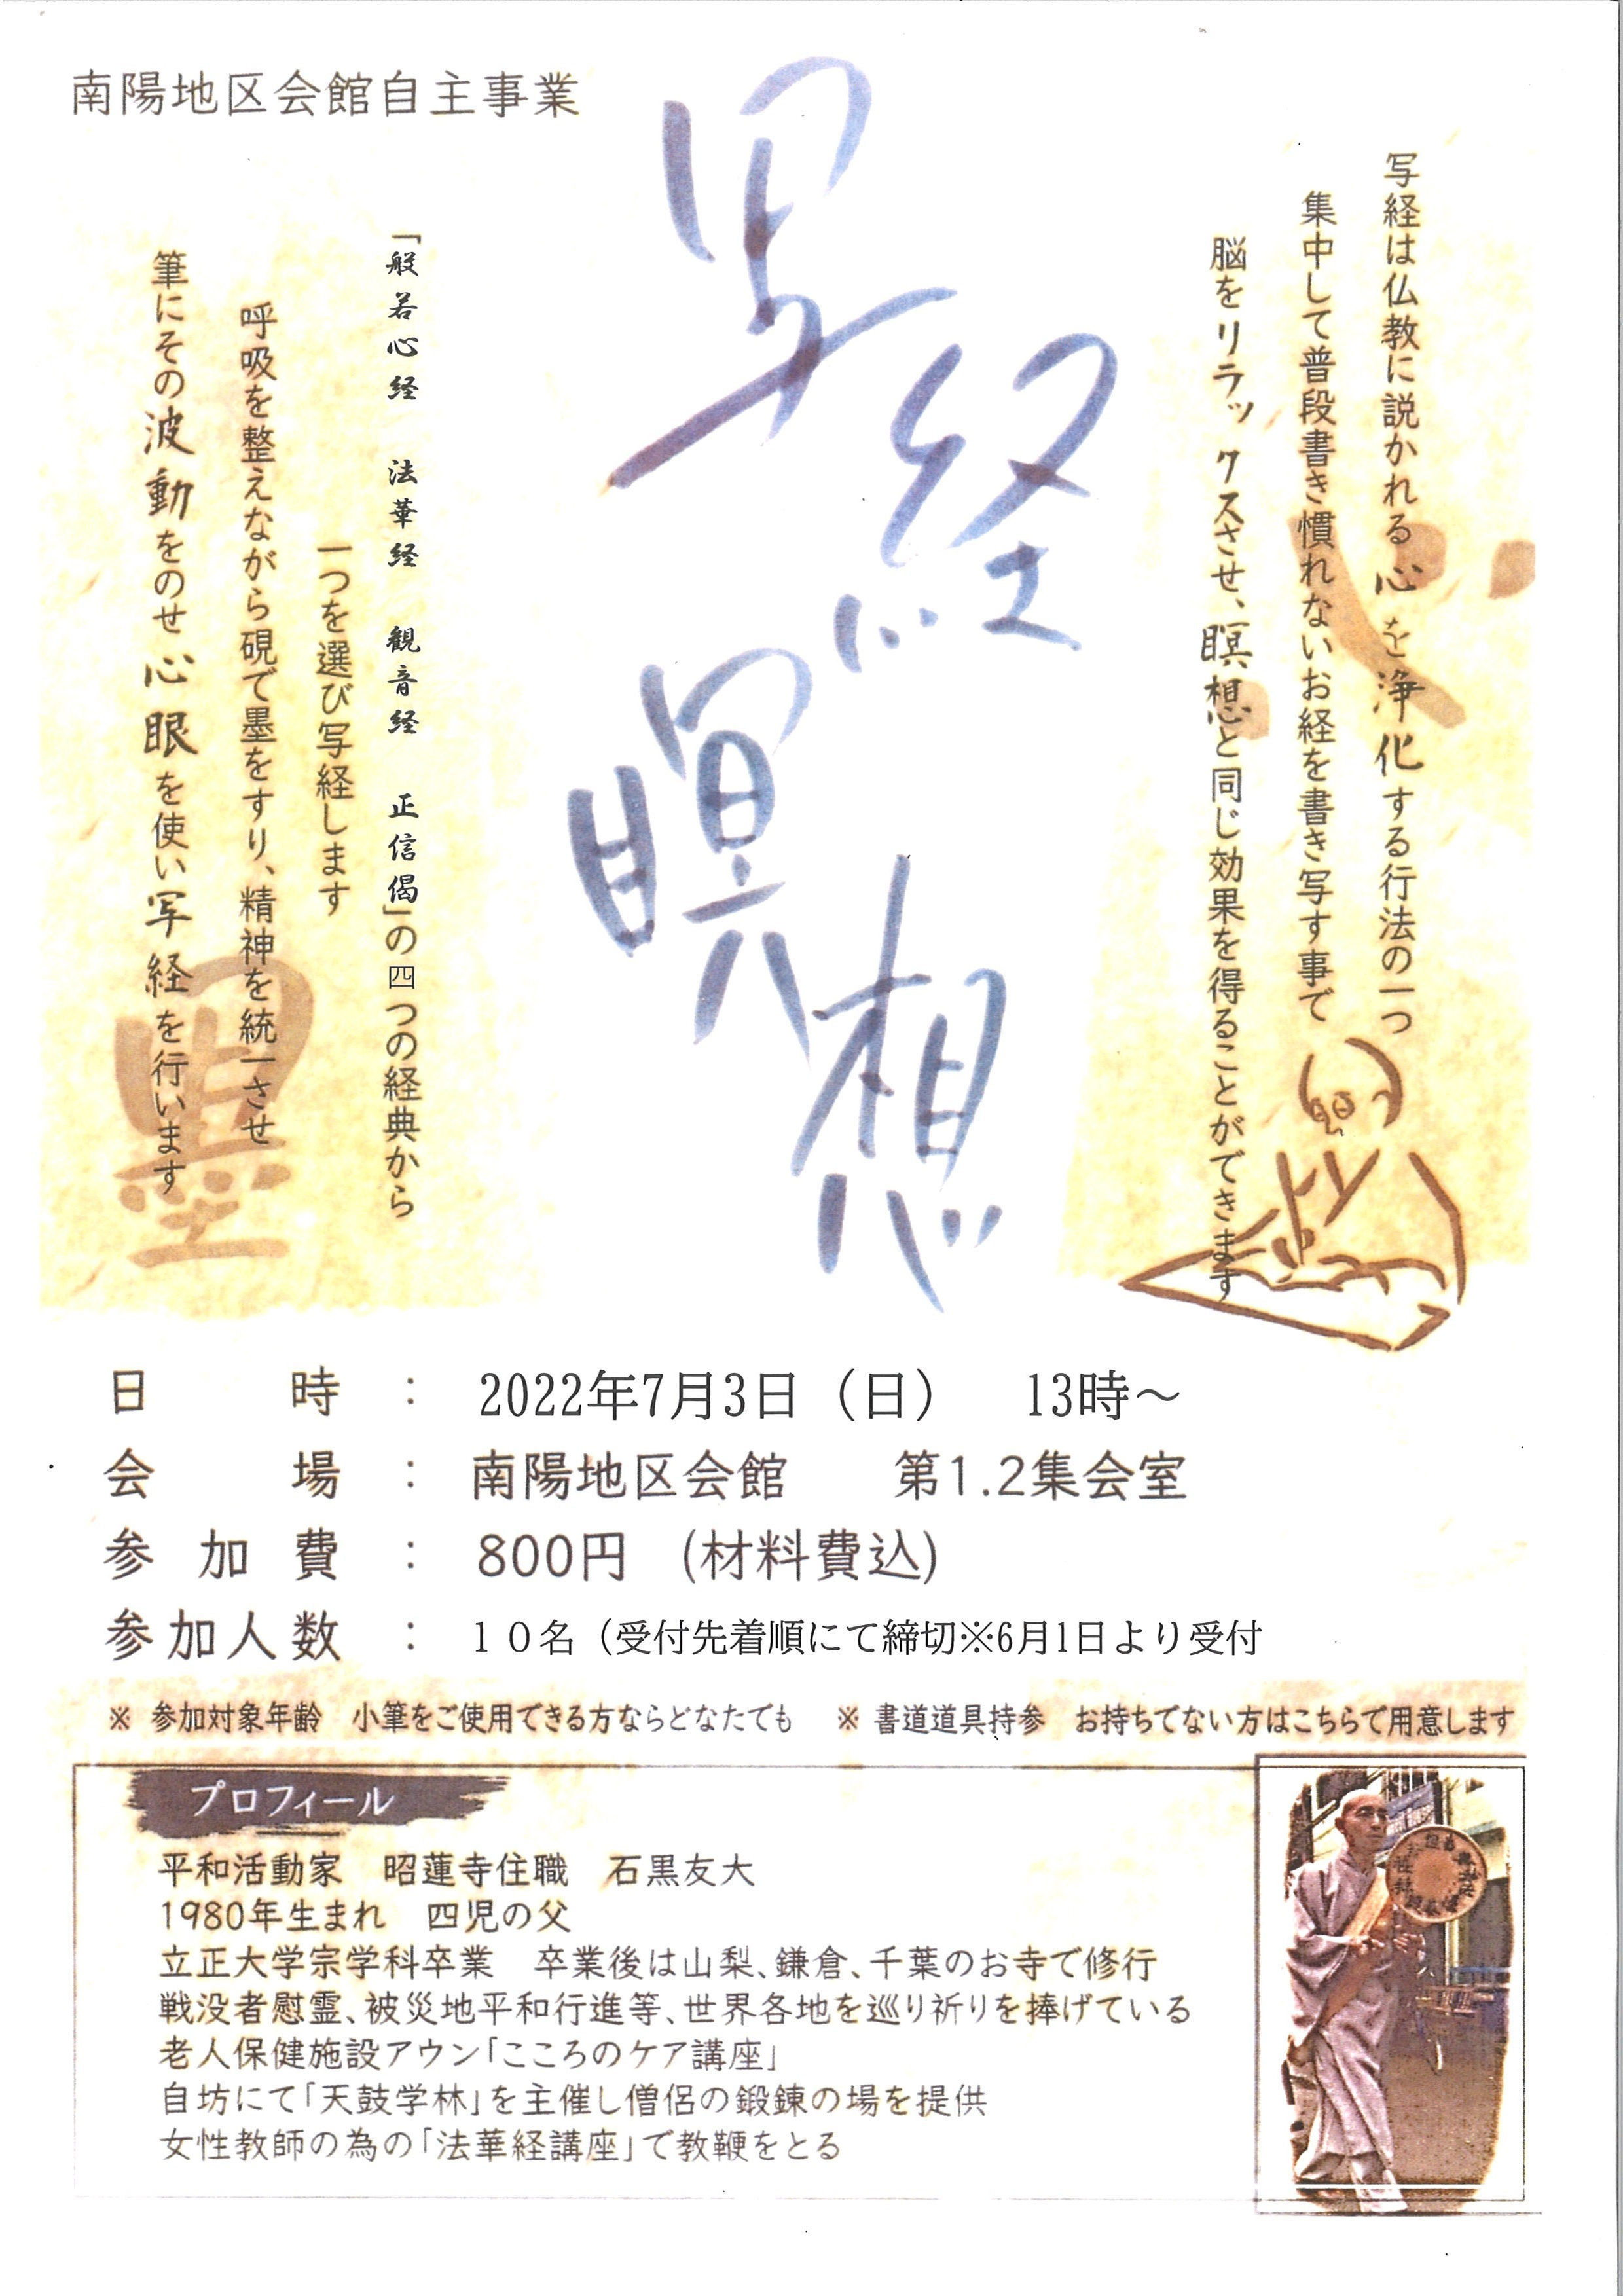 南陽地区会館自主事業
写経
瞑想
写経は仏教に説かれる心を浄化する行法の一つ
集中して普段書き慣れないお経を書き写す事で
脳をリラックスさせ、瞑想と同じ効果を得ることができます
「般若心経　法華経　観音経　正信偈」の四つの経典から
一つを選び写経します
呼吸を整えながら硯で墨をすり、精神を統一させ
筆にその波動をのせ心眼を使い写経を行います
墨
日時：2022年7月3日（日）　13時～
会場：南陽地区会館　第1.2集会室
参加費：800円　(材料費込)
参加人数：１０名（受付先着順にて締切※6月1日より受付
※ 参加対象年齢　小筆をご使用できる方ならどなたでも　※ 書道道具持参　お持ちでない方はこちらで用意します
プロフィール
平和活動家　昭蓮寺住職　石黒友大
1980年生まれ　四児の父
立正大学宗学科卒業　卒業後は山梨、鎌倉、千葉のお寺で修行
戦没者慰霊、被災地平和行進等、世界各地を巡り祈りを捧げている
老人保健施設アウン「こころのケア講座」
自坊にて「天鼓学林」を主催し僧侶の鍛錬の場を提供
女性教師の為の「法華経講座」で教鞭をとる